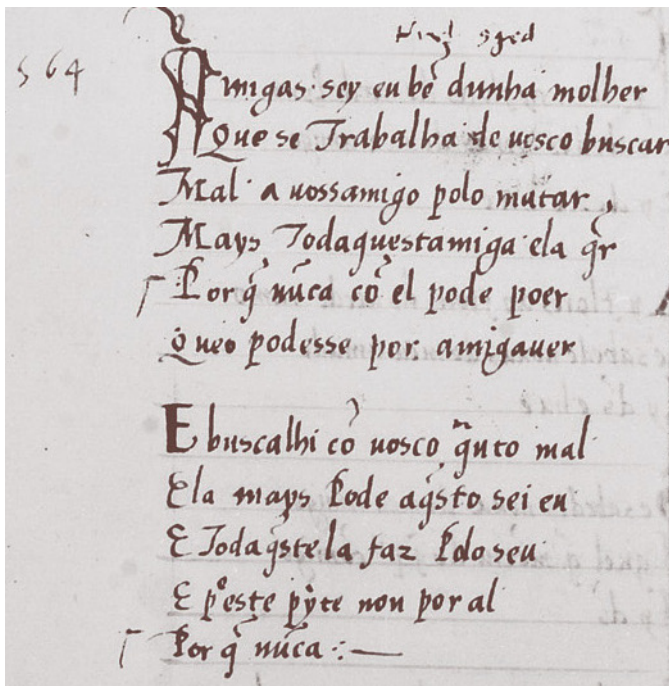 564
Amigas sey eu bẽ dunha molher
Que se Trabalha de uosco buscar
Mal a uossamigo polo matar
Mays Todaquestamiga ela q̃r
Porq̃ nũca cõ el pode poer
Queo podesse por amigauer
E buscalhi cõ uosco quto mal
Ela mays Pode aq̃sto sei eu
E Todaq̃stela faz Pdo seu
E p este pỹte non por al
Por q̃ nũca :—